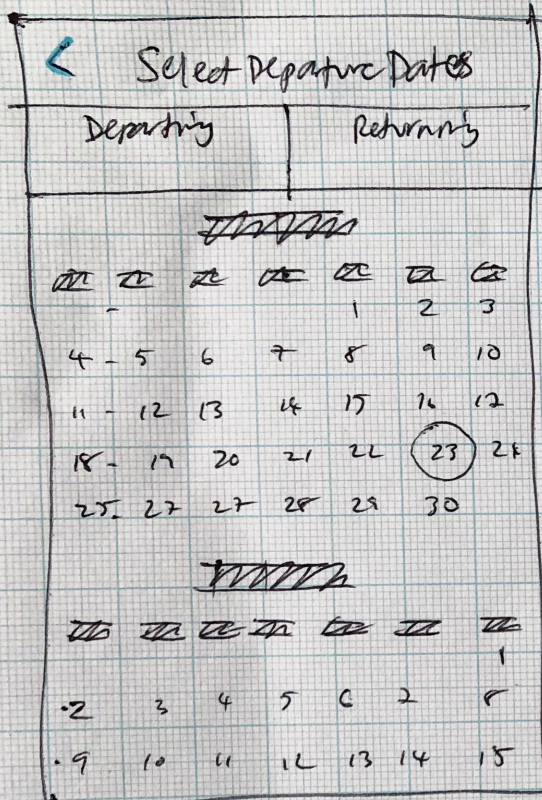 < Select Depature Dates
Departing Returning
1 2 3
4 - 5 6 7 8 9 10
11 - 12 13 14 15 16 17
18 - 19 20 21 22 23 24
25. 27 27 28 29 30
1
2 3 4 5 6 7 8
9 10 11 12 13 14 15